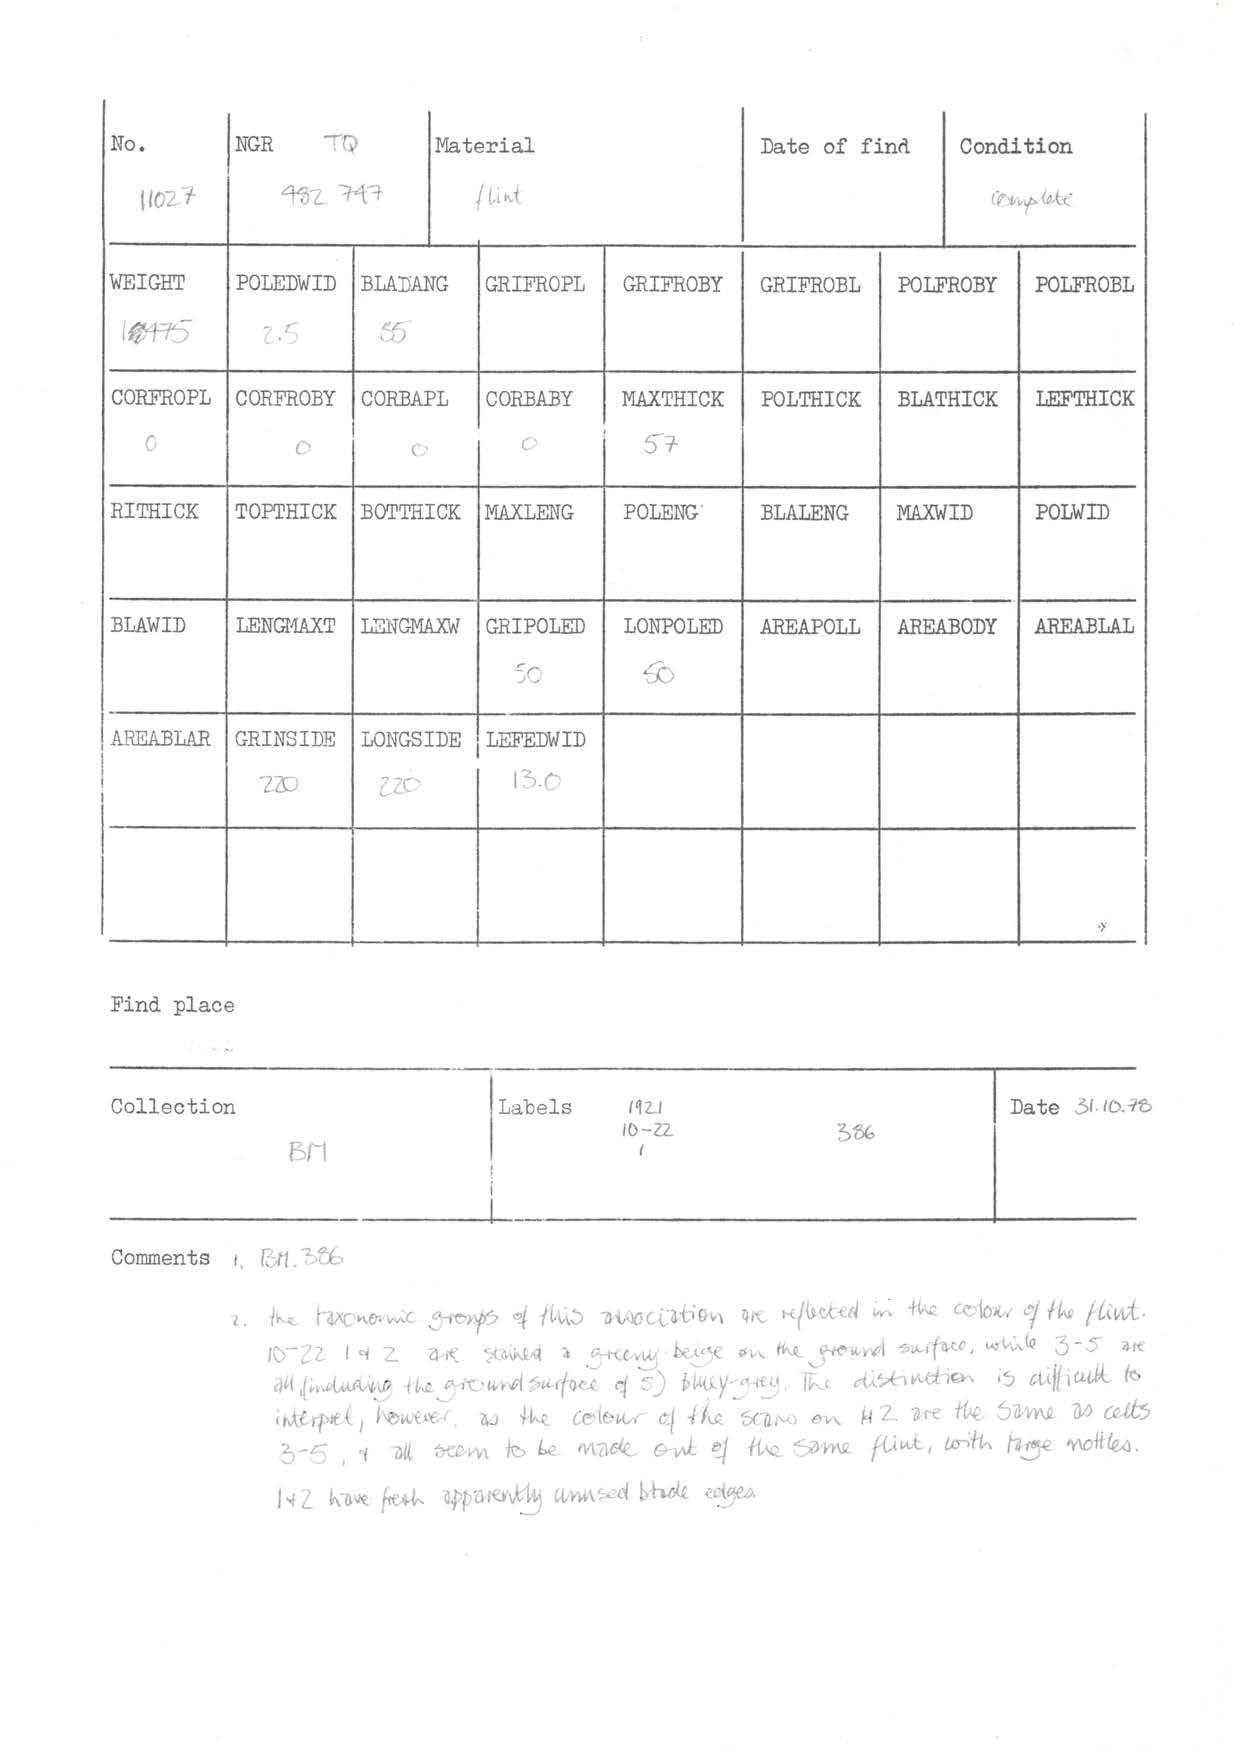 No. NGR TQ Material Date of find Condition
11027 482 747 flint complete
WEIGHT POLEDWID BLADANG GRIFROPL GRIFROBY GRIFROBL POLFROBY POLFROBL
2.5
CORFROPL CORFROBY CORBAPL CORBABY MAXTHICK POLTHICK BLATHICK LEFTHICK
0 0 0 0 57
RITHICK TOPTHICK BOTTHICK MAXLENG POLENG BLALENG MAXWID POLWID
BLAWID LENGMAXT LENGMAXW GRIPOLED LONPOLED AREAPOLL AREABODY AREABLAL
50 50
AREABLAR GRINSIDE LONGSIDE LEFEDWID
220 220 13.0
Find place
Collection Labels 1921 Date 31.10.78
10-22 386
BM 1
Comments 1. BM.386
2. the taxonomic groups of this association are reflected in the colour of the flint.
10-22 1 & 2 are stained a greeny-beige on the ground surface, while 3-5 are
all (including the ground surface of 5) bluey-grey. The distinction is difficult to
interpret, however, as the colour of the scars on 1+2 are the same as celts
3-5, & all seem to be made out of the same flint, with large mottles.
1+2 have fresh apparently unused blade edges.